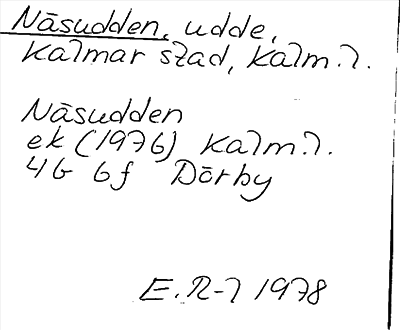 Näsudden, udde,
Kalmar stad, Kalm. l.
Näsudden
ek (1976) Kalm. l.
4G 6f Dörby
E. R-l 1978